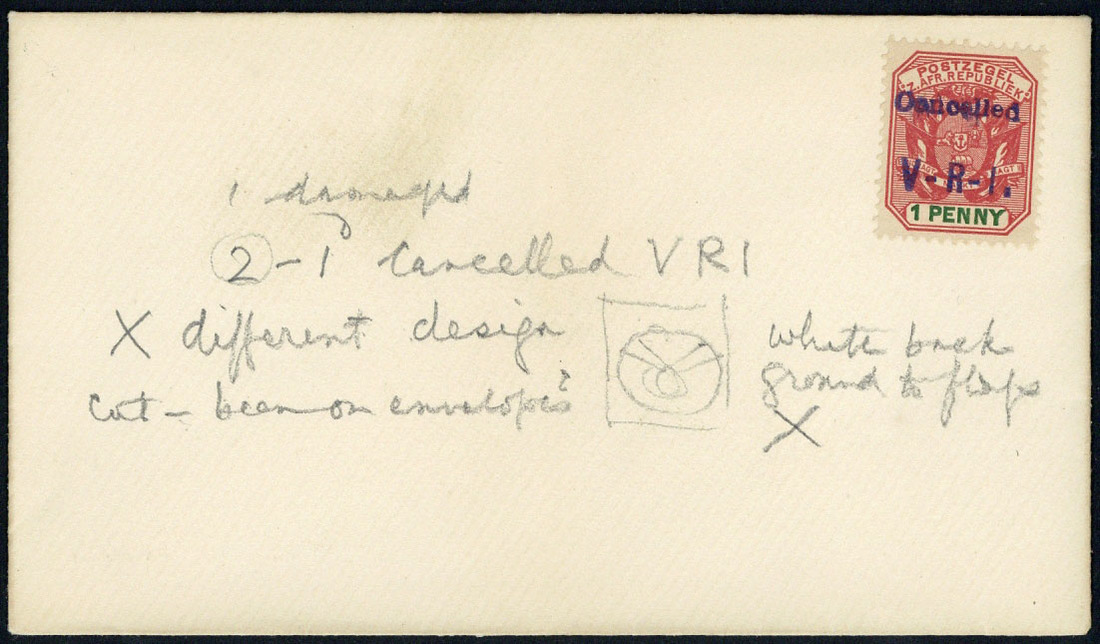 POSTZEGEL
Z. AFR. REPUBLIEK
Cancelled
V-R-I.
1 PENNY
1 damaged
2-1 Cancelled VRI
X different design
cut - been on envelopes?
white back
ground to flags
X